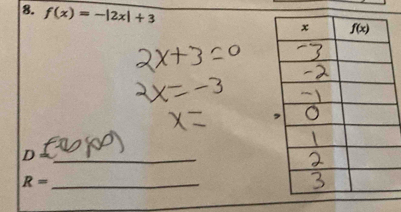 8. f(x) = -|2x| + 3
2x+3=0
2x=-3
x=
D =
R =
x f(x)
-3
-2
-1
0
1
2
3